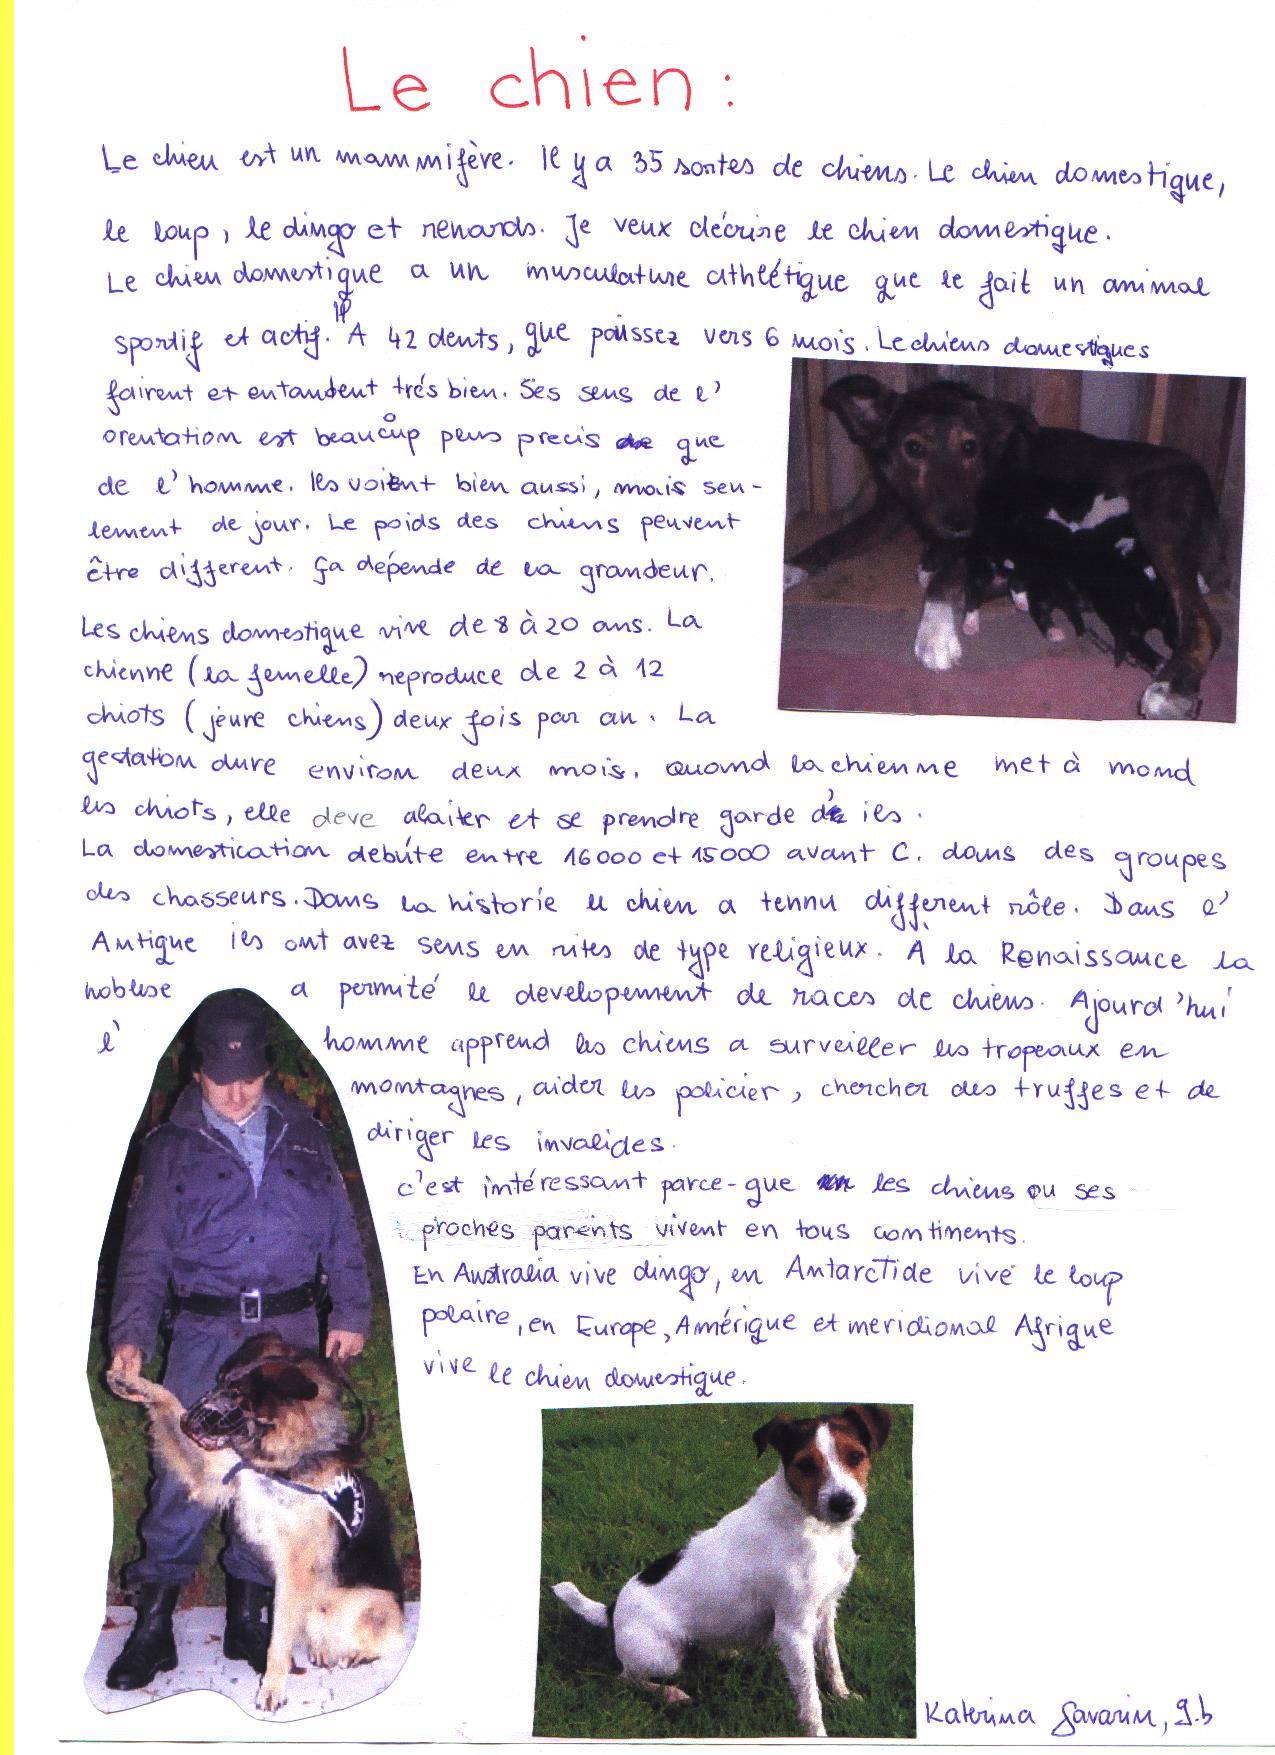 Le chien :
Le chien est un mammifère. Il y a 35 sortes de chiens. Le chien domestique,
le loup, le dingo et renards. Je veux décrire le chien domestique.
Le chien domestique a un musculature athlétique que le fait un animal
sportif et actif. Il A 42 dents, que paissez vers 6 mois. Le chiens domestiques
fairent et entandent trés bien. Ses sens de l'
orentation est beaucoup plus precis que
de l'homme. Iles voient bien aussi, mais seu-
lement de jour. Le poids des chiens peuvent
être different. Ça dépende de la grandeur.
Les chiens domestique vive de 8 à 20 ans. La
chienne (la femelle) reproduce de 2 à 12
chiots (jeure chiens) deux fois par an. La
gestation dure environ deux mois. Quand la chienne met à mond
les chiots, elle deve alaiter et se prendre garde d'iles.
La domestication debúte entre 16000 et 15000 avant C. dans des groupes
des chasseurs. Dans la historie le chien a tennu different rôle. Dans l'
Antique iles ont avez sens en rites de type religieux. À la Renaissance la
noblese a permité le developement de races de chiens. Ajourd'hui
l' homme apprend les chiens a surveiller les tropeaux en
montagnes, aider les policier, chercher des truffes et de
diriger les invalides.
c'est intéressant parce-que les chiens ou ses
proches parents vivent en tous continents.
En Australia vive dingo, en Antarctide vive le loup
polaire, en Europe, Amérique et meridional Afrique
vive le chien domestique.
Katerina Gavarin, 9.b